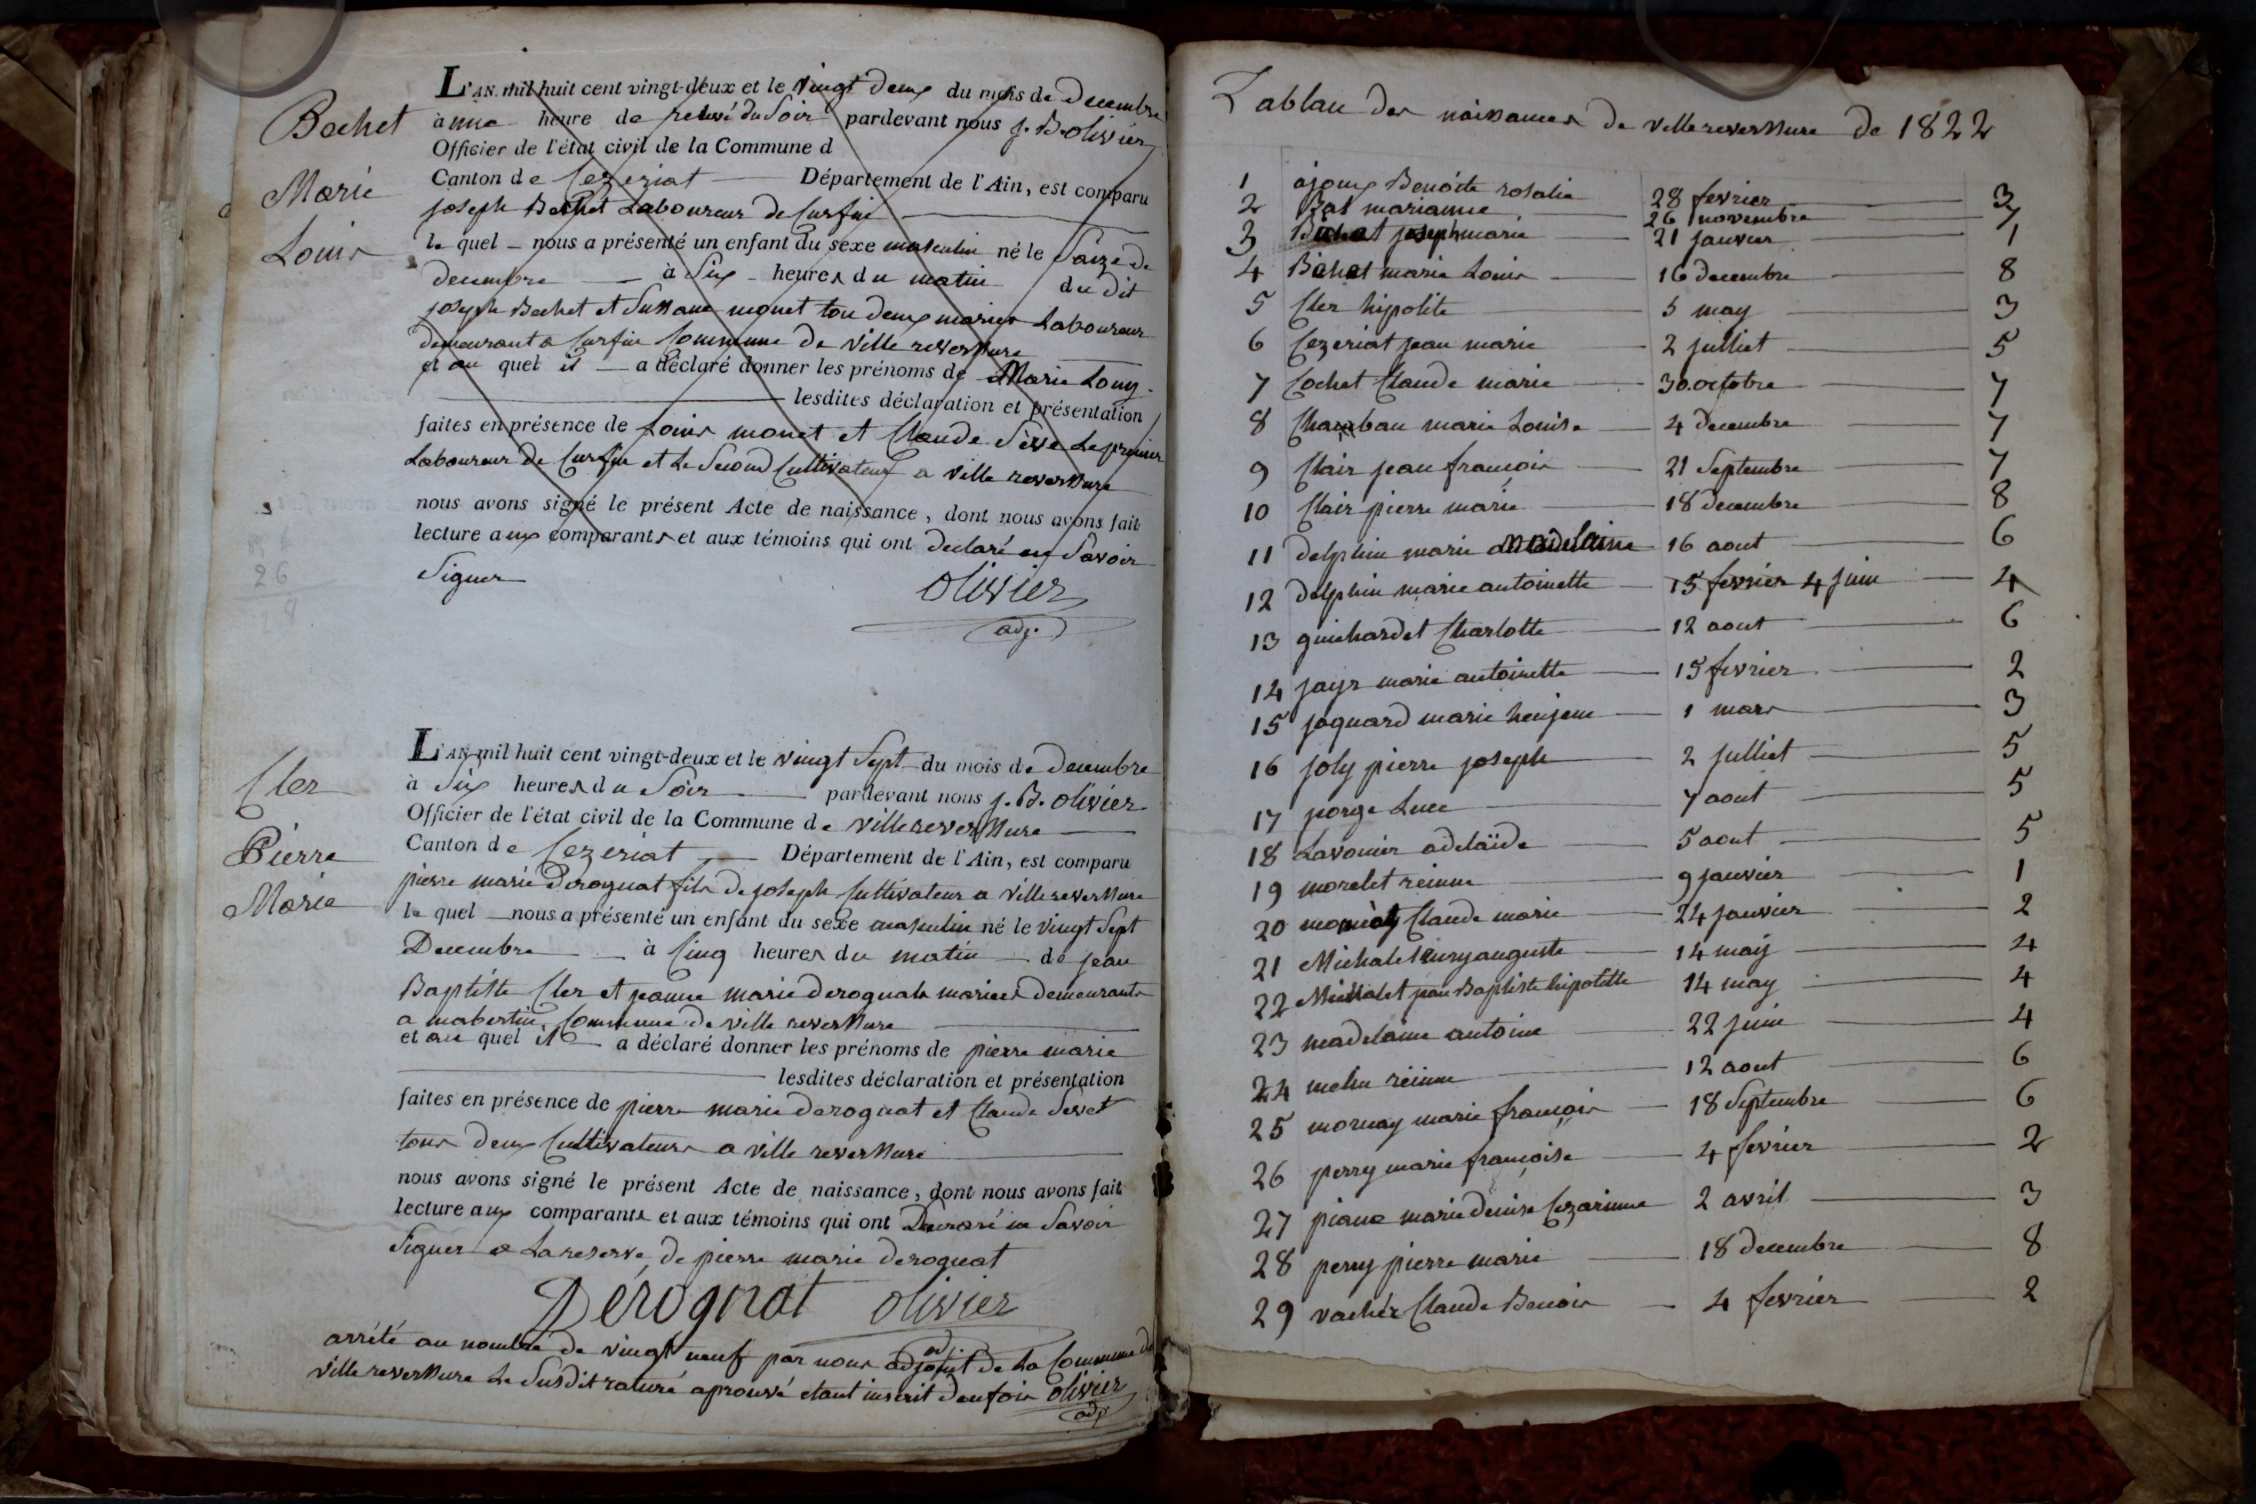 Bochet
Marie
Louis
L'AN mil huit cent vingt-deux et le vingt deux du mois de Decembre
à une heure de relevé du Soir pardevant nous j. B. olivier
Officier de l'état civil de la Commune d
Canton de Cezeriat Département de l'Ain, est comparu
joseph Bochet Laboureur de Curfin
le quel nous a présenté un enfant du sexe masculin né le Saize de
decembre à Six heures du matin du dit
joseph Bochet et Susane monet tou deux mariés Laboureur
demeurant a Curfin Commune de ville reversure
et au quel il a déclaré donner les prénoms de Marie Louy
lesdites déclaration et présentation
faites en présence de Louis monet et Claude Seve Le premier
Laboureur de Curfin et Le Second Cultivateur a ville reversure
nous avons signé le présent Acte de naissance, dont nous avons fait
lecture aux comparants et aux témoins qui ont declaré ne Savoir
Signer
olivier
adj.
Cler
Pierre
Marie
L'AN mil huit cent vingt-deux et le vingt Sept du mois de Decembre
à Six heures du Soir pardevant nous j. B. olivier
Officier de l'état civil de la Commune de villereversure
Canton de Cezeriat Département de l'Ain, est comparu
pierre marie Derognat fils de joseph Cultivateur a villereversure
le quel nous a présenté un enfant du sexe masculin né le vingt Sept
Decembre à Cinq heures du matin de jean
Baptiste Cler et jeanne marie derognat mariés demeurants
a mabertin Commune de ville reversure
et au quel il a déclaré donner les prénoms de pierre marie
lesdites déclaration et présentation
faites en présence de pierre marie derognat et Claude Sevet
tous deux Cultivateurs a ville reversure
nous avons signé le présent Acte de naissance, dont nous avons fait
lecture aux comparants et aux témoins qui ont Declaré ne Savoir
Signer a La reserve de pierre marie derognat
Dérognat olivier
adj
arrété au nombre de vingt neuf par nous adjoint de La Commune de
ville reversure Le Susdit raturé aprouvé etant inscrit deux fois olivier
adj
Tablau des naissances de villereversure de 1822
1 ajoux Benoite rosalie 28 fevrier 3
2 Bal marianne 26 novembre 7
3 Bochet joseph marie 21 janvier 1
4 Bochet marie Louis 16 decembre 8
5 Cler hipolite 5 may 3
6 Cezeriat jean marie 2 julliet 5
7 Cochet Claude marie 30 octobre 7
8 Chambau marie Louise 4 decembre 7
9 Clair jean francois 21 Septembre 7
10 Clair pierre marie 18 decembre 8
11 delphin marie madelaine 16 aout 6
12 delphin marie antoinette 15 fevrier 4 juin 4
13 guichardet Charlotte 12 aout 6
14 jayr marie antoinette 15 fevrier 2
15 joquard marie henjene 1 mars 3
16 joly pierre joseph 2 julliet 5
17 jorge Luce 7 aout 5
18 Lavonier adelaïde 5 aout 5
19 morelet reinne 9 janvier 1
20 Claude marie 24 janvier 2
21 Michalet henry auguste 14 may 4
22 Michalet jean Baptiste hipolitte 14 may 4
23 madelaine antoine 22 juin 4
24 melin reinne 12 aout 6
25 mornay marie francois 18 Septembre 6
26 perry marie françoise 4 fevrier 2
27 piane marie denise Cezarinne 2 avril 3
28 perry pierre marie 18 decembre 8
29 vachér Claude Benoir 4 fevrier 2